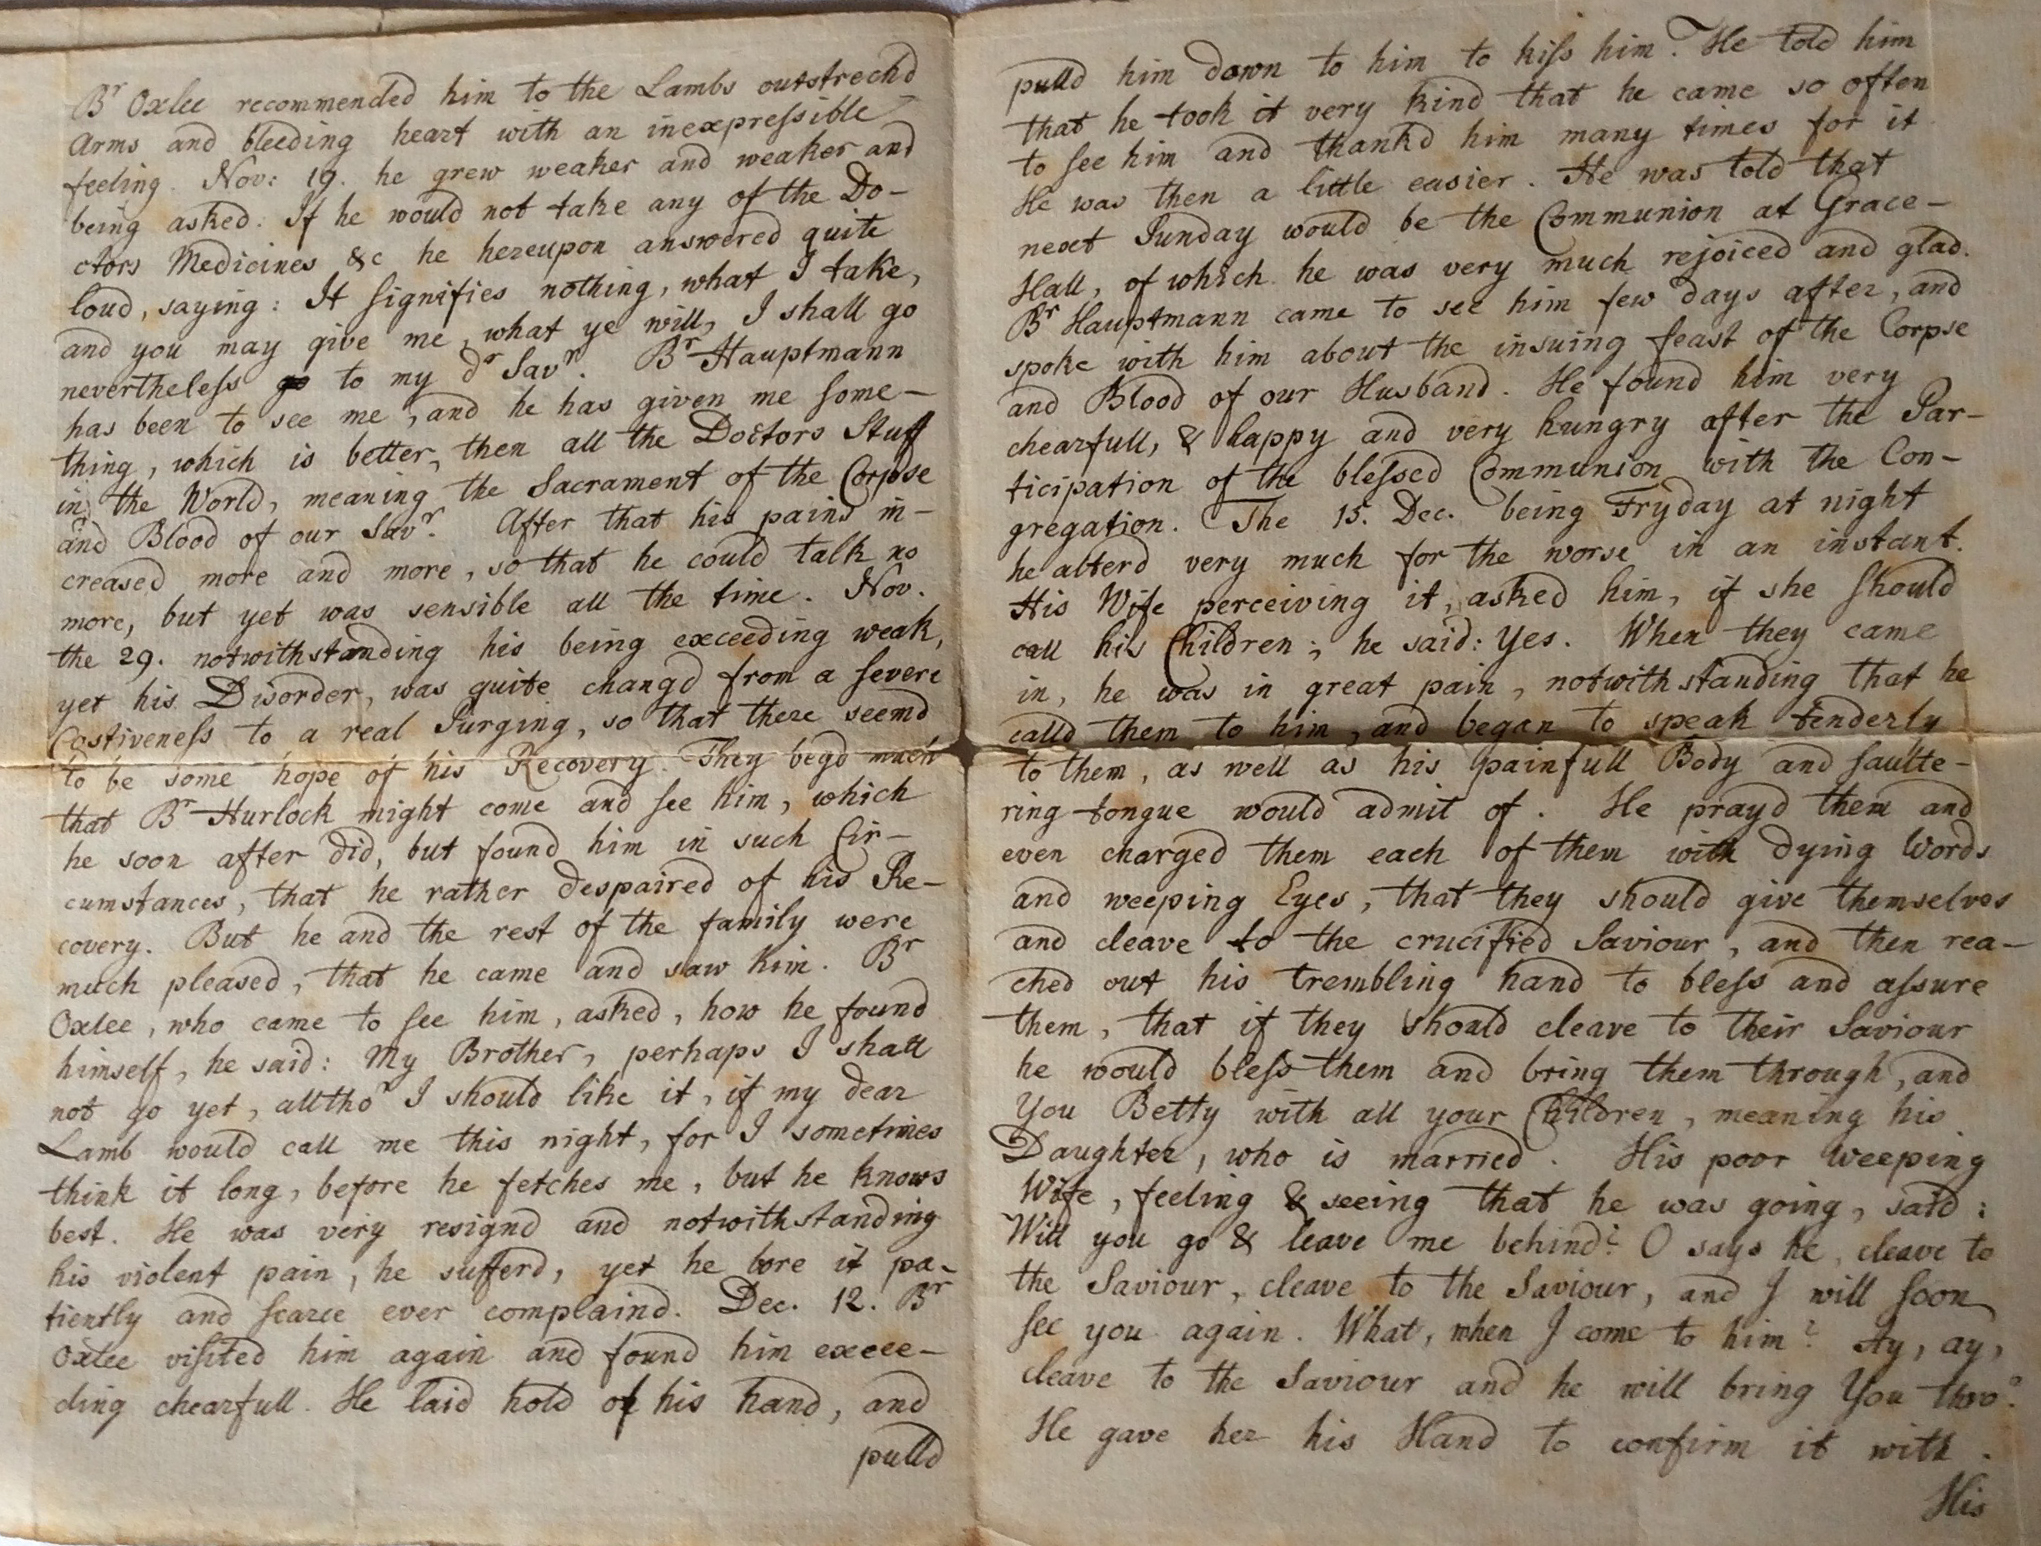 Br Oxlee recommended him to the Lambs outstrechd
Arms and bleeding heart with an inexpressible
feeling. Nov: 19. he grew weaker and weaker and
being asked: If he would not take any of the Do-
ctors Medicines &c he hereupon answered quite
loud, saying: It signifies nothing, what I take,
and you may give me, what ye will, I shall go
nevertheless to my dr Savr. Br Hauptmann
has been to see me, and he has given me some-
thing, which is better, then all the Doctors Stuff
in the World, meaning the Sacrament of the Corpse
and Blood of our Savr. After that his pains in-
creased more and more, so that he could talk no
more, but yet was sensible all the time. Nov.
the 29. notwithstanding his being exceeding weak,
yet his Disorder, was quite changd from a severe
Costiveness to a real Purging, so that there seemd
to be some hope of his Recovery. They begd much
that Br Hurlock might come and see him, which
he soon after did, but found him in such Cir-
cumstances, that he rather despaired of his Re-
covery. But he and the rest of the family were
much pleased, that he came and saw him. Br
Oxlee, who came to see him, asked, how he found
himself, he said: My Brother, perhaps I shall
not go yet, alltho' I should like it, if my dear
Lamb would call me this night, for I sometimes
think it long, before he fetches me, but he knows
best. He was very resignd and notwithstanding
his violent pain, he sufferd, yet he bore it pa-
tiently and scarce ever complaind. Dec. 12. Br
Oxlee visited him again and found him excee-
ding chearfull. He laid hold of his hand, and
pulld
pulld him down to him to kiss him. He told him
that he took it very kind that he came so often
to see him and thankd him many times for it
He was then a little easier. He was told that
next Sunday would be the Communion at Grace-
Hall, of which he was very much rejoiced and glad.
Br Hauptmann came to see him few days after, and
spoke with him about the insuing feast of the Corpse
and Blood of our Husband. He found him very
chearfull, & happy and very hungry after the Par-
ticipation of the blessed Communion with the Con-
gregation. The 15. Dec. being Fryday at night
he alterd very much for the worse in an instant.
His Wife perceiving it, asked him, if she should
call his Children; he said: Yes. When they came
in, he was in great pain, notwithstanding that he
calld them to him, and began to speak tenderly
to them, as well as his painfull Body and faulte-
ring tongue would admit of. He prayd them and
even charged them each of them with dying Words
and weeping Eyes, that they should give themselves
and cleave to the crucified Saviour, and then rea-
ched out his trembling hand to bless and assure
them, that if they should cleave to their Saviour
he would bless them and bring them through, and
You Betty with all your Children, meaning his
Daughter, who is married. His poor weeping
Wife, feeling & seeing that he was going, said:
Will you go & leave me behind? O says he, cleave to
the Saviour, cleave to the Saviour, and I will soon
see you again. What, when I come to him? Ay, ay,
cleave to the Saviour and he will bring You thro'.
He gave her his Hand to confirm it with.
His